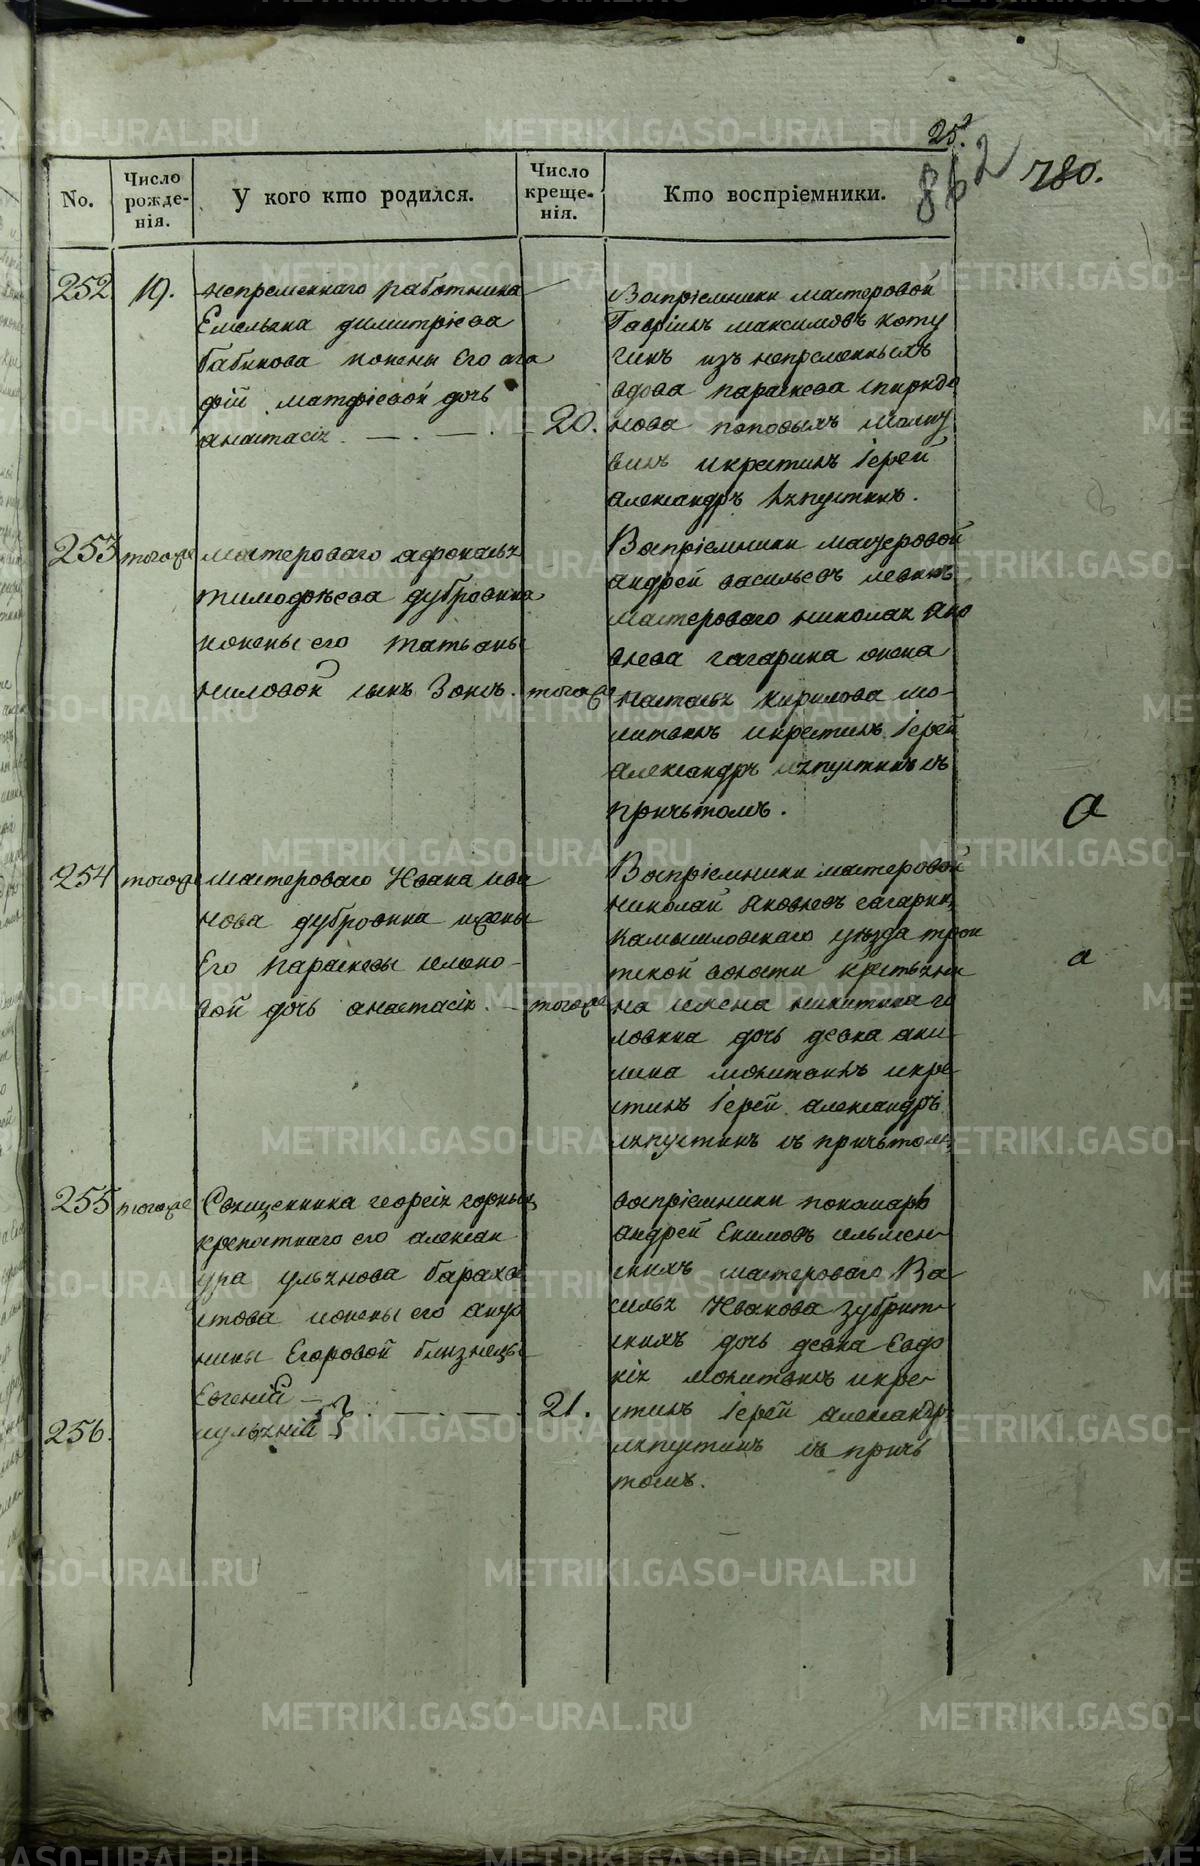 25.
862
780.
No.
Число рожде-нія.
У кого кто родился.
Число креще-нія.
Кто воспріемники.
252.
19.
непременнаго работника
Емельяна димитріева
бабикова жены Его ага
фіи матфіевой дочь
анастасія.
20.
Воспріемники мастеровой
Гавріилъ максимовъ
изъ непременныхъ
вдова параскева спиридо
нова поповыхъ молит
вилъ и крестилъ Іерей
александръ
253
тогоже
мастероваго афонасья
тимофѣева дубровина
жены его татьяны
ниловой сынъ
тогоже
Воспріемники мастеровой
андрей васильевъ левинъ
мастероваго николая яко
влева гагарина жена
наталья кирилова мо-
литвилъ и крестилъ Іерей
александръ съ
причьтомъ.
а
254
тогоже
мастероваго Ивана ива
нова дубровина жены
Его параскевы
вой дочь анастасія.
тогоже
Воспріемники мастеровой
николай яковлевъ гагаринъ
камышловскаго уѣзда трои
тской волости крестьяни
на семена никитина го
ловина дочь девка аки-
лина молитвилъ и кре-
стилъ Іерей александръ
съ причьтомъ
а
255
тогоже
Священника георгія горныхъ
крепостнаго его алексан
дра ульянова
жены его
Егоровой близнецы
Евгеній
256.
іульяній
21.
воспріемники пономарь
андрей Екимовъ
мастероваго Ва
силья Иванова зубрит-
скихъ дочь девка Евдо
кія молитвилъ и кре-
стилъ Іерей александръ
съ причь
томъ.
METRIKI.GASO-URAL.RU